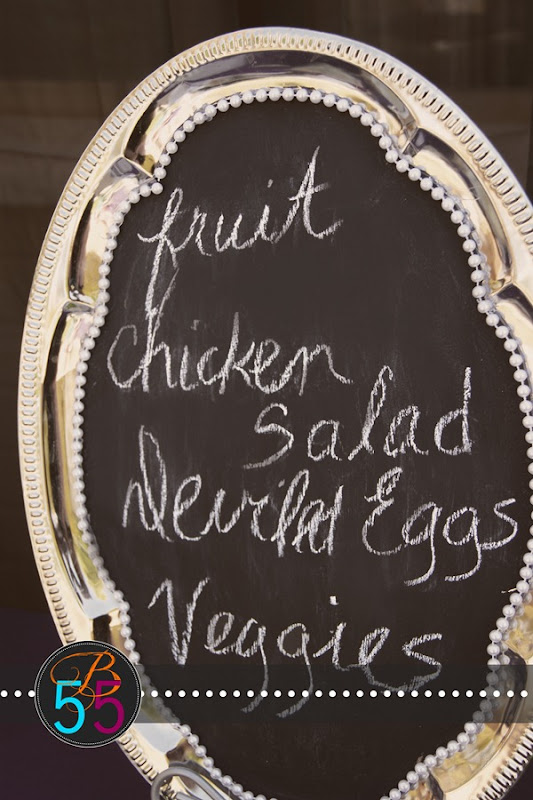 fruit
chicken
Salad
Deviled Eggs
Veggies
B
55